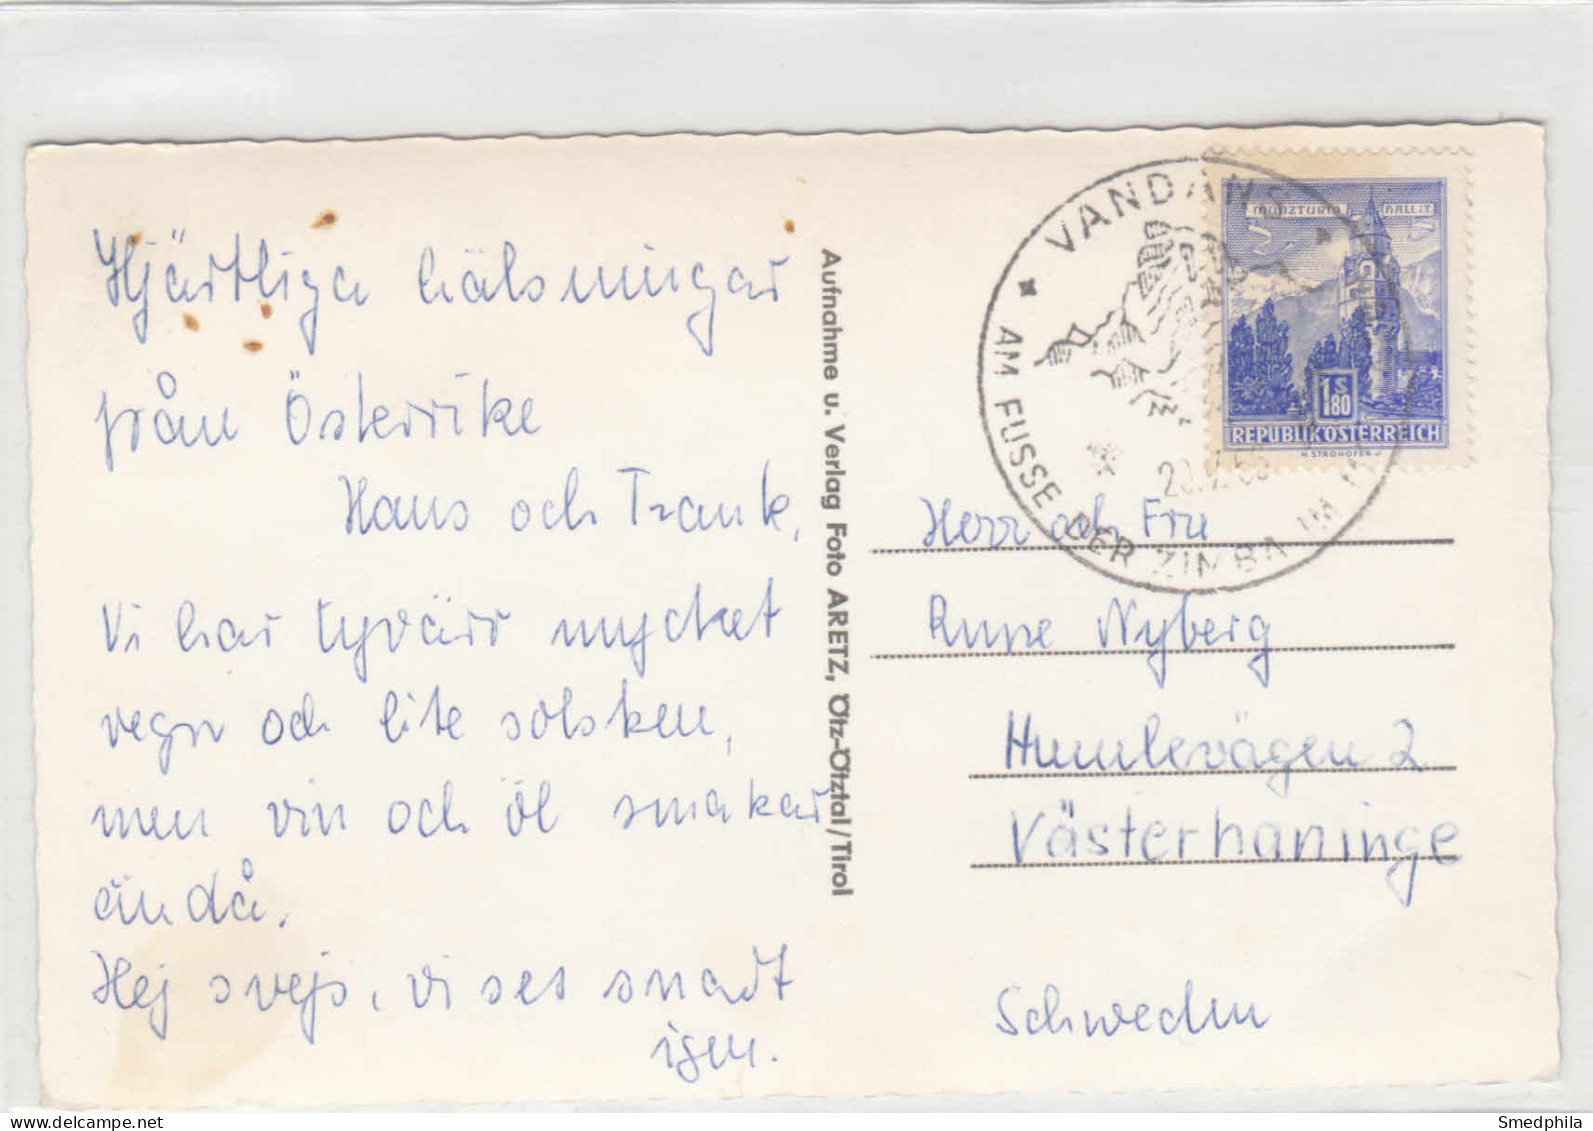 Hjärtliga hälsningar
från Österrike
Hans och Frank.
Vi har tyvärr mycket
regn och lite solsken,
men vin och öl smakar
ändå.
Hej svejs, vi ses snart
igen.
Aufnahme u. Verlag Foto ARETZ, Ötz-Ötztal/Tirol
VANDANS
AM FUSSE DER ZIMBA IM
MÜNZTURM HALL i.T.
1S 80
REPUBLIK ÖSTERREICH
H. STROHOFER
Herr och Fru
Rune Nyberg
Humlevägen 2
Västerhaninge
Schweden
Smedphila